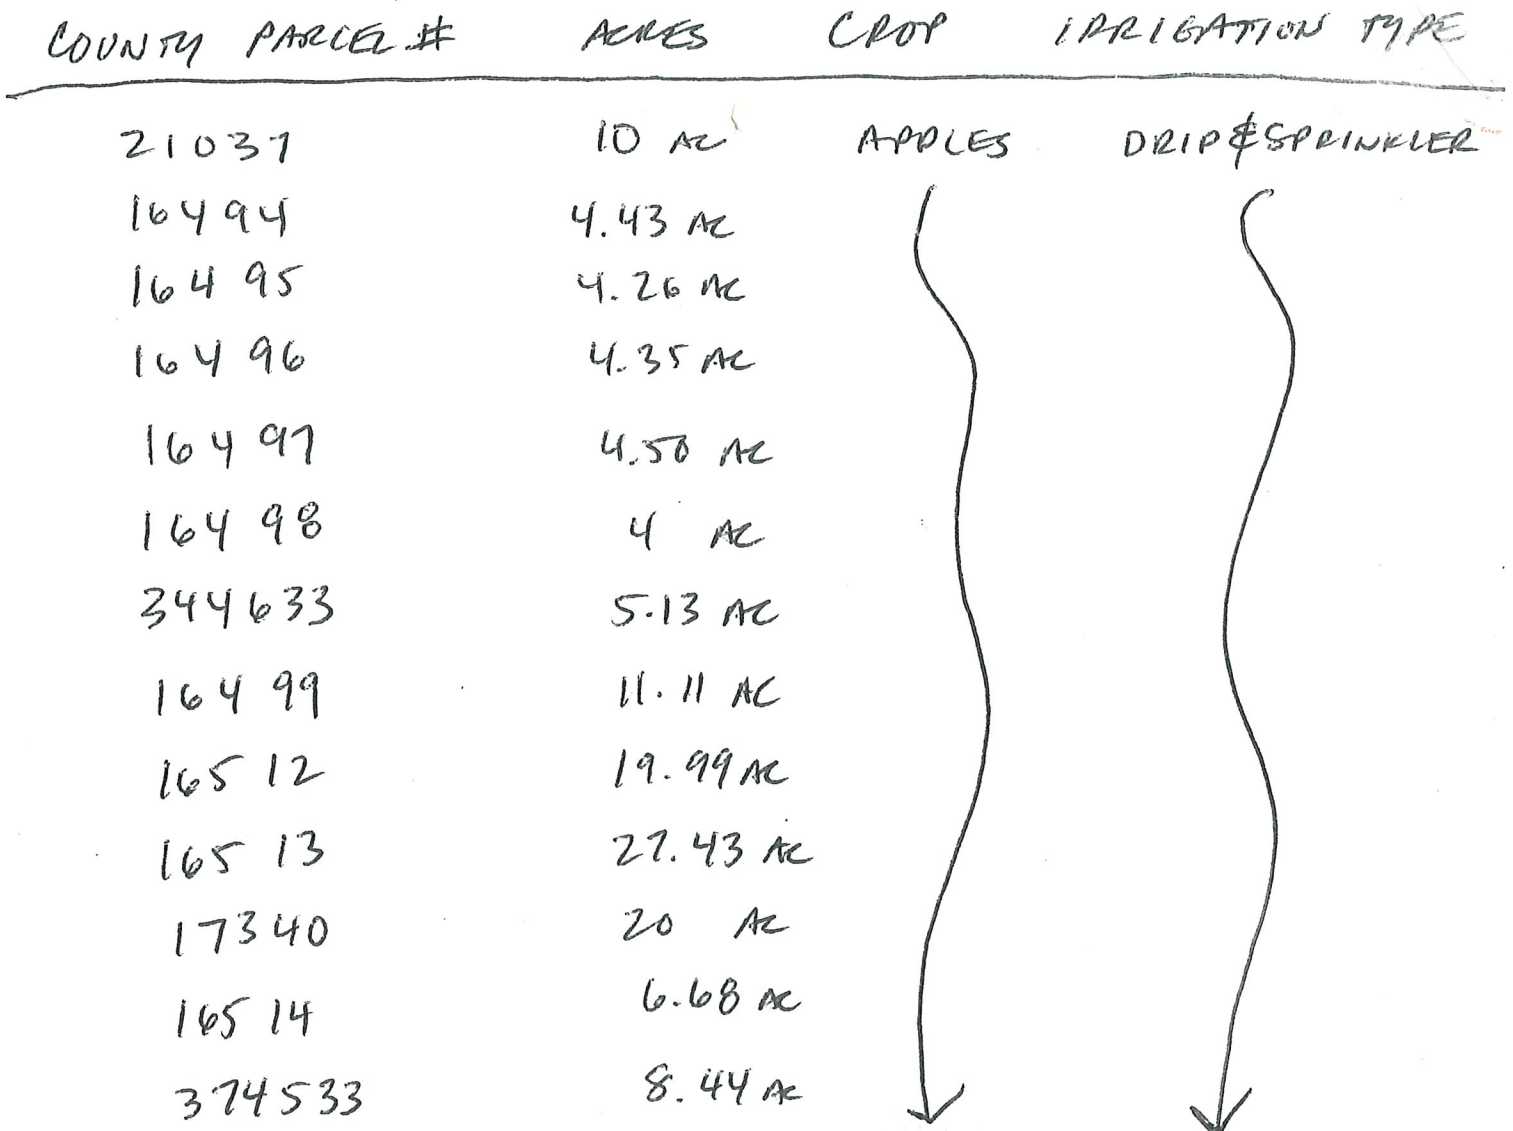 COUNTY PARCEL # ACRES CROP IRRIGATION TYPE
21037 10 AC APPLES DRIP & SPRINKLER
16494 4.43 AC
16495 4.26 AC
16496 4.35 AC
16497 4.50 AC
16498 4 AC
344633 5.13 AC
16499 11.11 AC
16512 19.99 AC
16513 27.43 AC
17340 20 AC
16514 6.68 AC
374533 8.44 AC